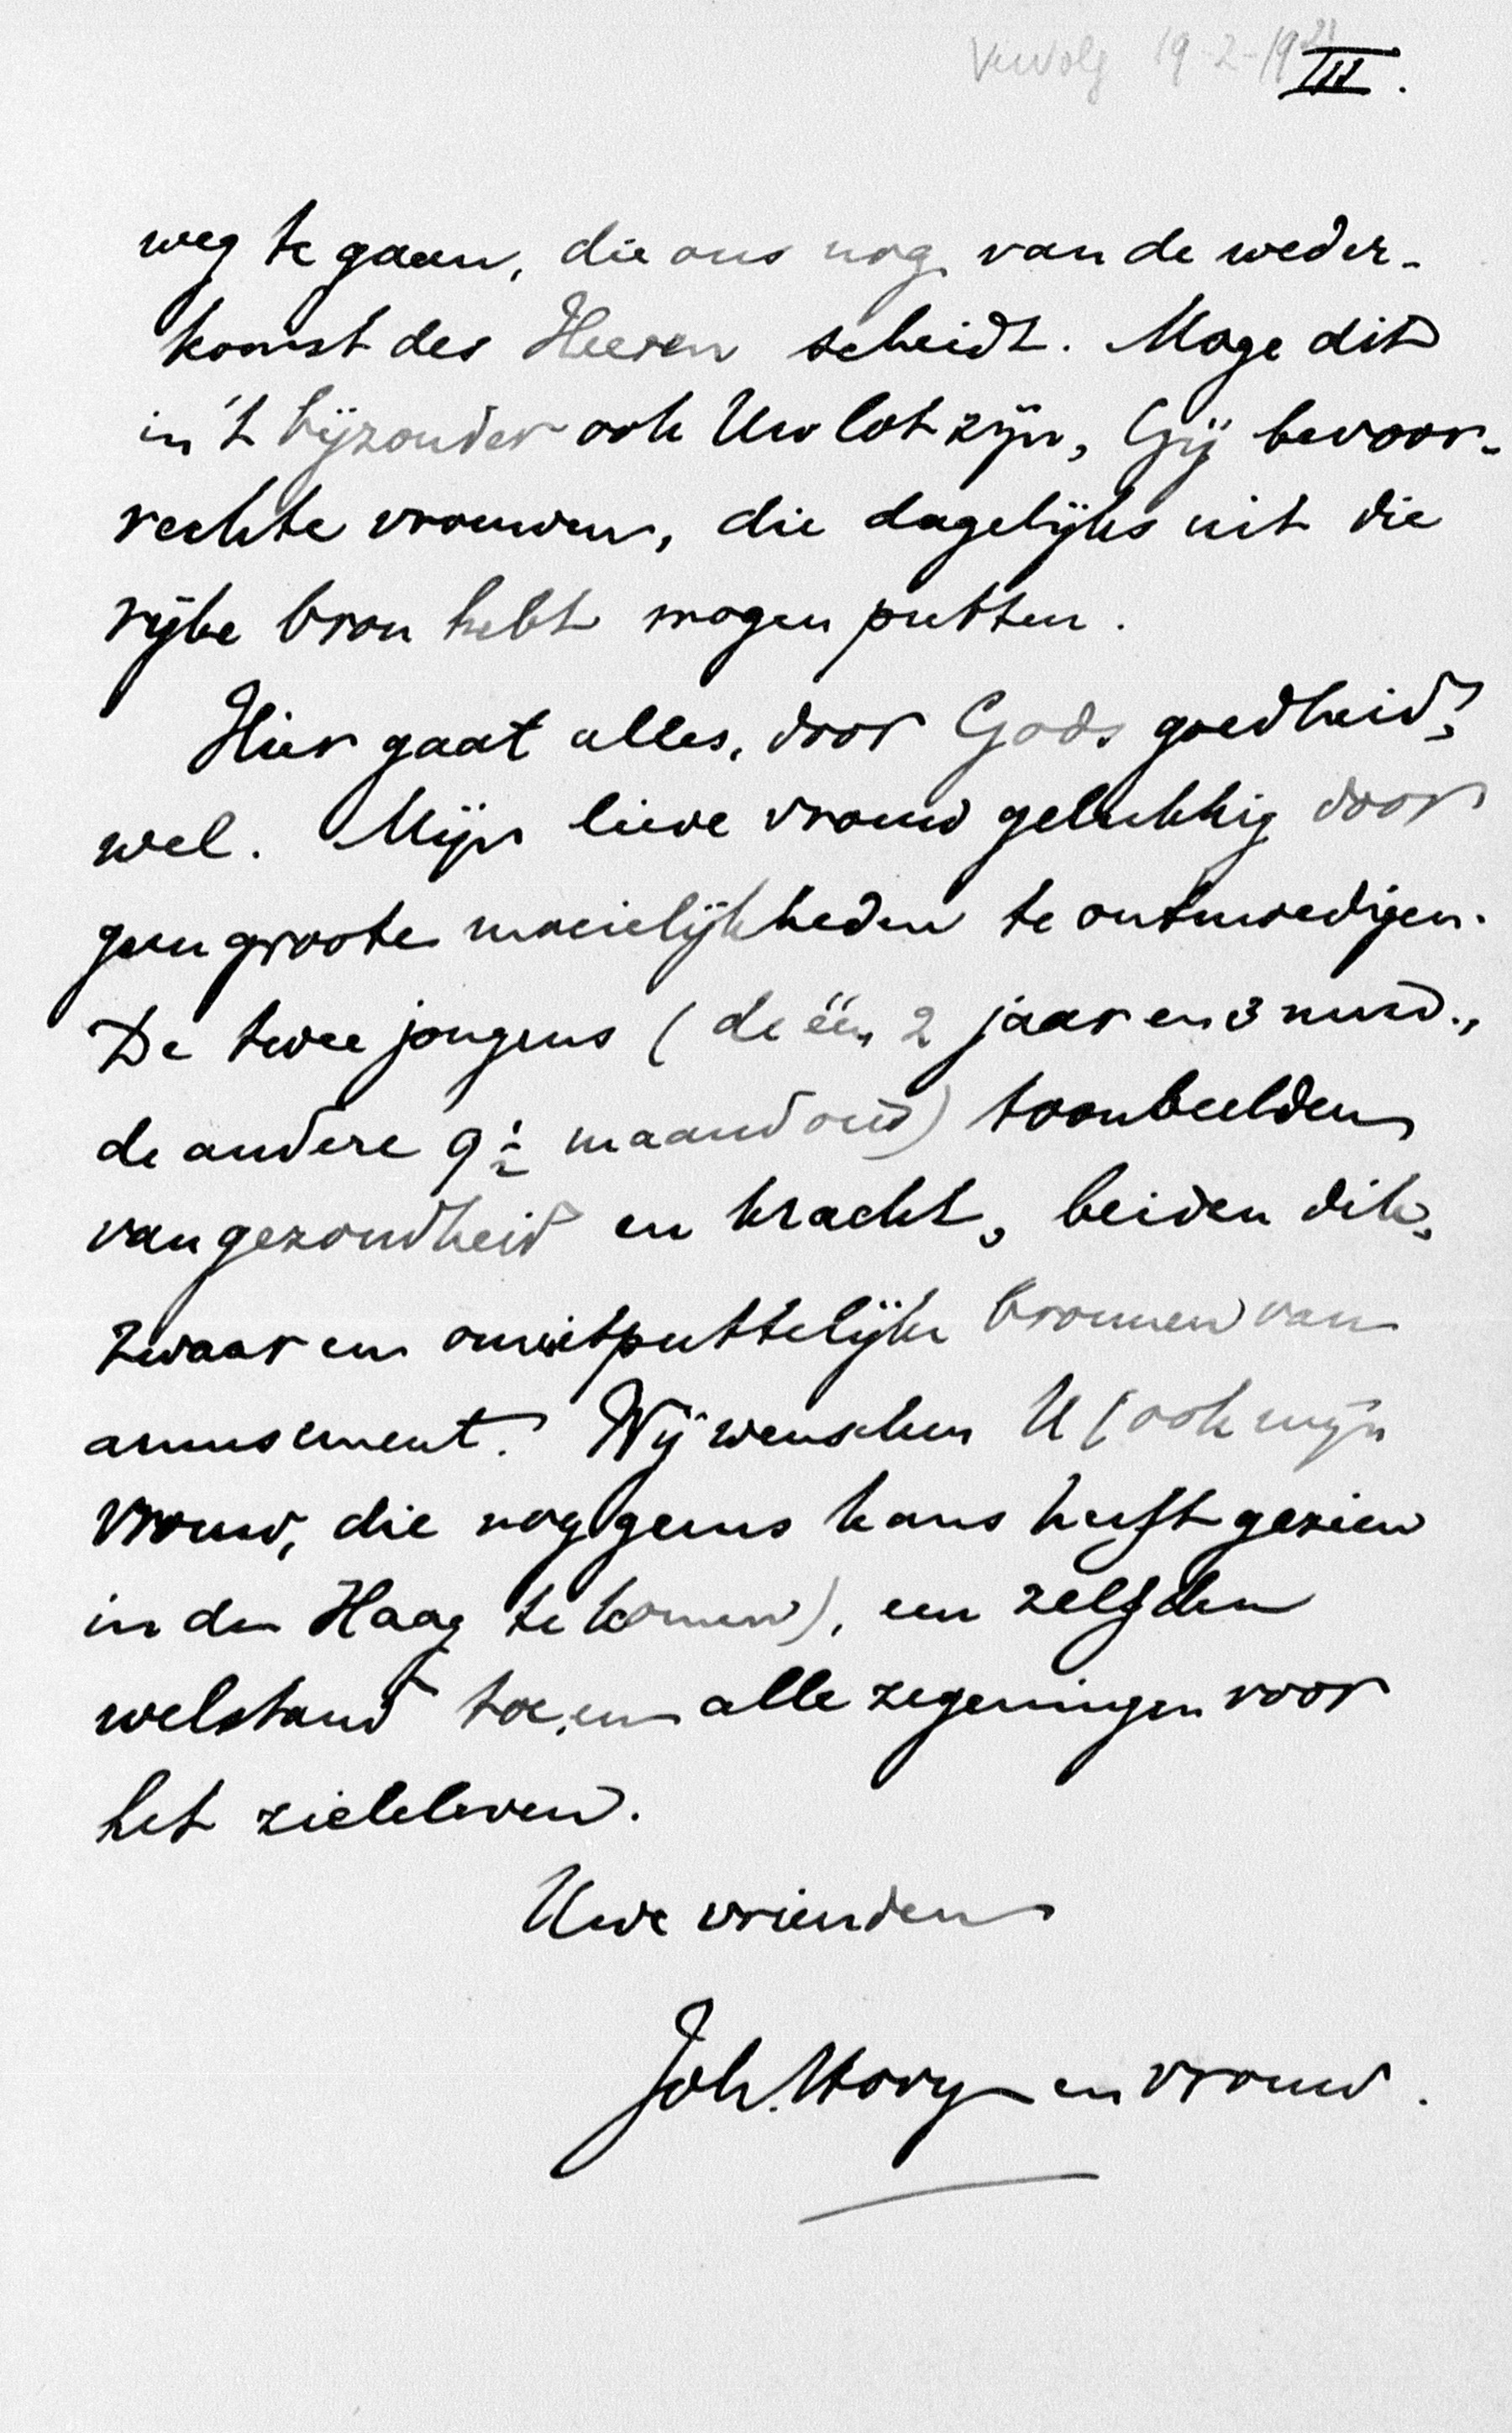 Vervolg 19-2-1921
III.
weg te gaan, die ons nog van de weder-
komst des Heeren scheidt. Moge dit
in 't bijzonder ook Uw lot zijn, Gij bevoor-
rechte vrouwen, die dagelijks uit die
rijke bron hebt mogen putten.
Hier gaat alles, door Gods goedheid,
wel. Mijn lieve vrouw gelukkig door
geen groote moeielijkheden te ontmoedigen.
De twee jongens (de één 2 jaar en 3 mnd.,
de andere 9½ maand oud) toonbeelden
van gezondheid en kracht, beiden dik,
zwaar en onuitputtelijke bronnen van
amusement. Wij wenschen U (ook mijn
vrouw, die nog geens kans heeft gezien
in den Haag te komen), een zelfden
welstand toe, en alle zegeningen voor
het zieleleven.
Uwe vrienden
Joh. en vrouw.